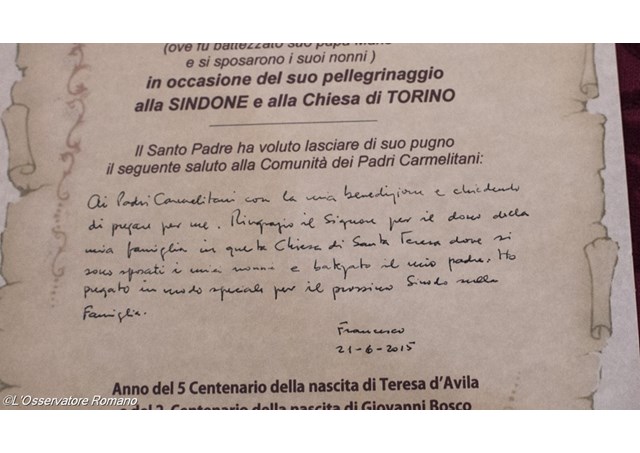 (ove fu battezzato suo papà Mario
e si sposarono i suoi nonni )
in occasione del suo pellegrinaggio
alla SINDONE e alla Chiesa di TORINO
Il Santo Padre ha voluto lasciare di suo pugno
il seguente saluto alla Comunità dei Padri Carmelitani:
Ai Padri Carmelitani con la mia benedizione e chiedendo
di pregare per me. Ringrazio il Signore per il dono della
mia famiglia in questa Chiesa di Santa Teresa dove si
sono sposati i miei nonni e batezato il mio padre. Ho
pregato in modo speciale per il prossimo Sinodo sulla
Famiglia.
Francesco
21-6-2015
Anno del 5 Centenario della nascita di Teresa d'Avila
e del 2 Centenario della nascita di Giovanni Bosco
©L'Osservatore Romano